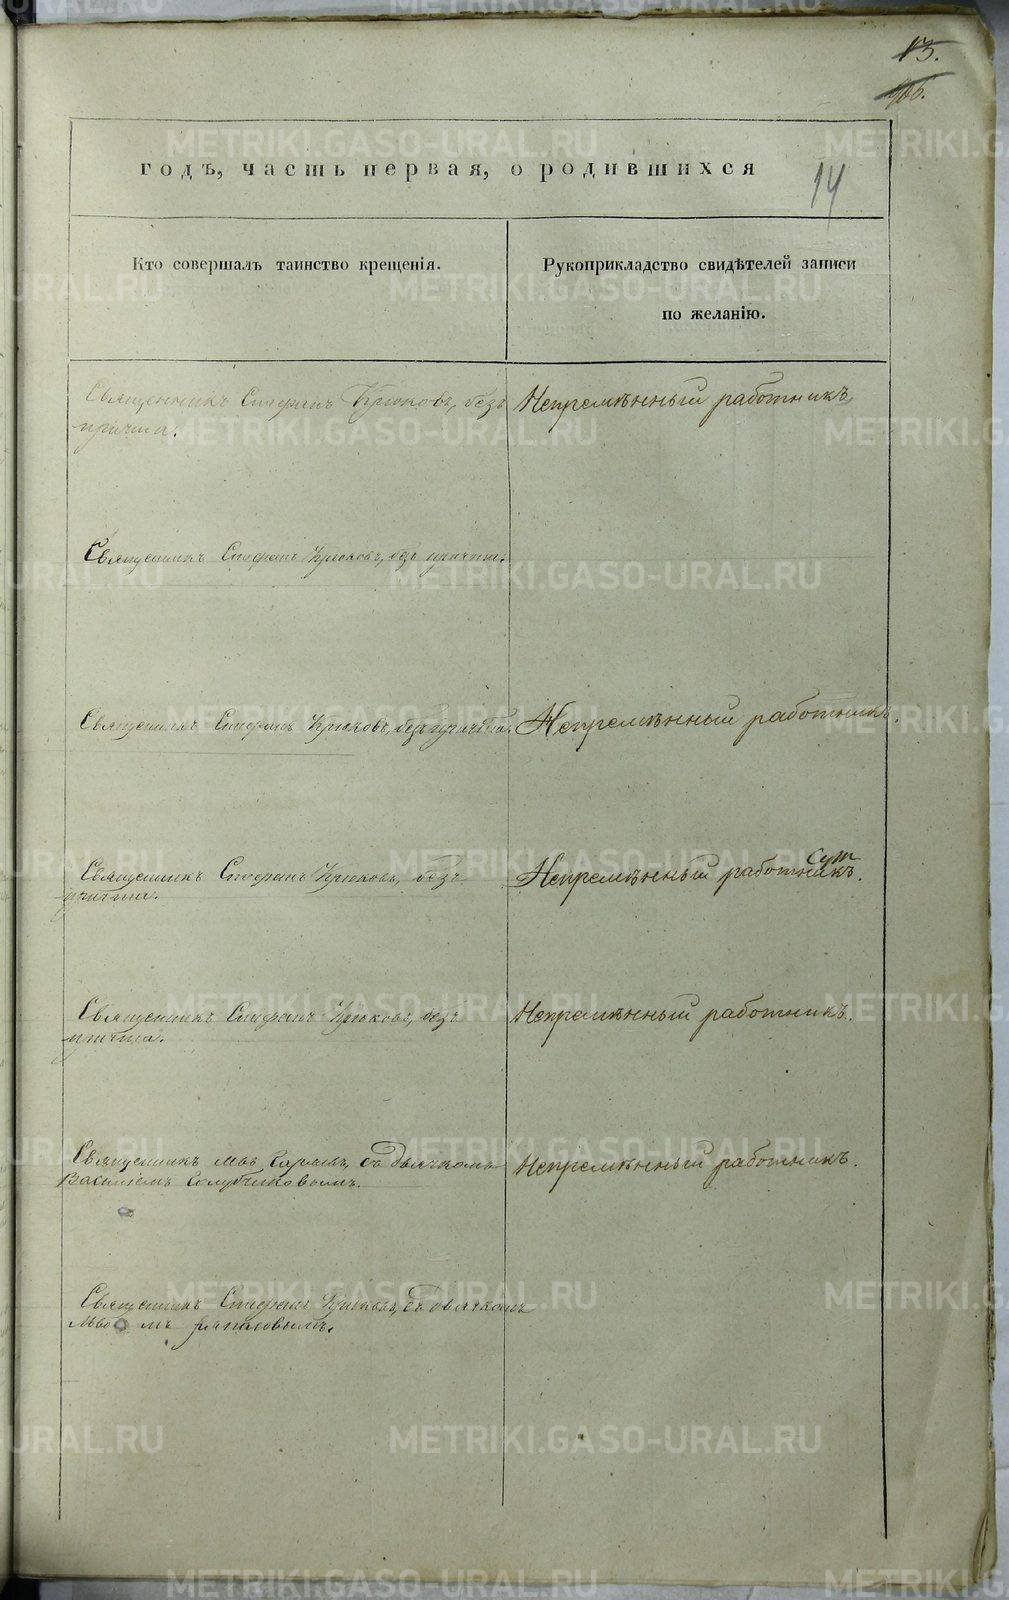 13.
106.
14
годъ, часть первая, о родившихся
Кто совершалъ таинство крещенія.
Рукоприкладство свидѣтелей записи
по желанію.
Священникъ Стефанъ Крюковъ, безъ
причта.
Непремѣнный работникъ
Священникъ Стефанъ Крюковъ, безъ причта.
Священникъ Стефанъ Крюковъ, безъ причта.
Непремѣнный работникъ.
Священникъ Стефанъ Крюковъ, безъ
причта.
Непремѣнный работникъ.
Священникъ Стефанъ Крюковъ, безъ
причта.
Непремѣнный работникъ.
Священникъ съ дьячкомъ
Василіемъ
Непремѣнный работникъ.
Священникъ Стефанъ Крюковъ, съ дьячкомъ
METRIKI.GASO-URAL.RU